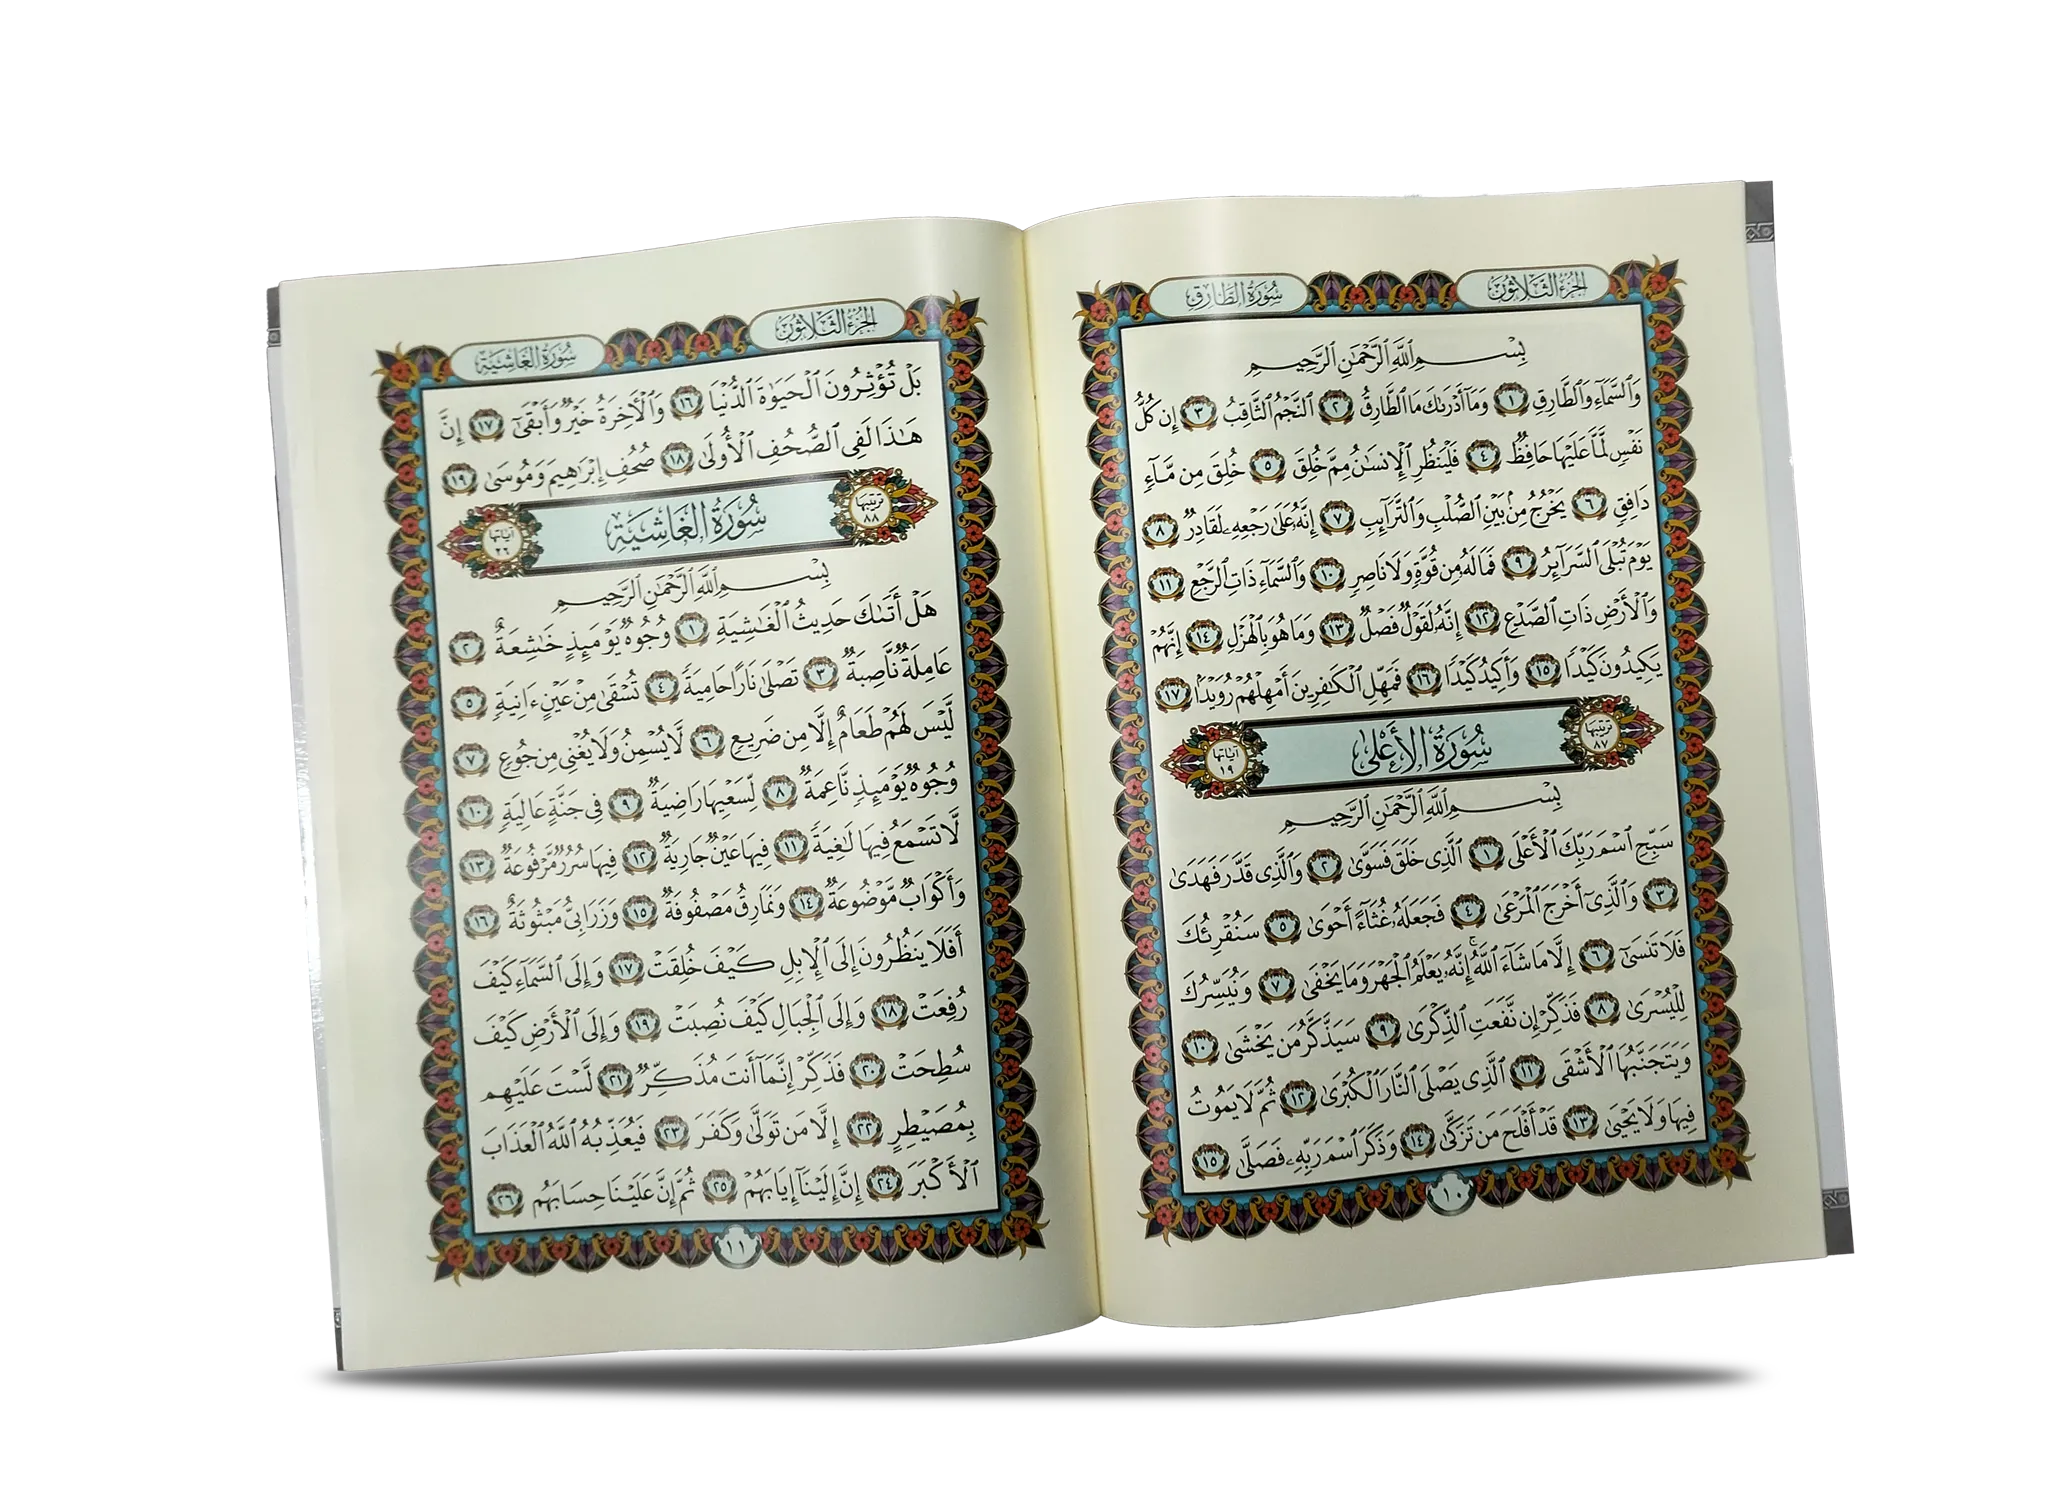 الجزء الثلاثون
سورة الطارق
بِسْمِ ٱللَّهِ ٱلرَّحْمَٰنِ ٱلرَّحِيمِ
وَٱلسَّمَآءِ وَٱلطَّارِقِ ١ وَمَآ أَدْرَىٰكَ مَا ٱلطَّارِقُ ٢ ٱلنَّجْمُ ٱلثَّاقِبُ ٣ إِن كُلُّ
نَفْسٍ لَّمَّا عَلَيْهَا حَافِظٌ ٤ فَلْيَنظُرِ ٱلْإِنسَٰنُ مِمَّ خُلِقَ ٥ خُلِقَ مِن مَّآءٍ
دَافِقٍ ٦ يَخْرُجُ مِنۢ بَيْنِ ٱلصُّلْبِ وَٱلتَّرَآئِبِ ٧ إِنَّهُۥ عَلَىٰ رَجْعِهِۦ لَقَادِرٌ ٨
يَوْمَ تُبْلَى ٱلسَّرَآئِرُ ٩ فَمَا لَهُۥ مِن قُوَّةٍ وَلَا نَاصِرٍ ١٠ وَٱلسَّمَآءِ ذَاتِ ٱلرَّجْعِ ١١
وَٱلْأَرْضِ ذَاتِ ٱلصَّدْعِ ١٢ إِنَّهُۥ لَقَوْلٌ فَصْلٌ ١٣ وَمَا هُوَ بِٱلْهَزْلِ ١٤ إِنَّهُمْ
يَكِيدُونَ كَيْدًا ١٥ وَأَكِيدُ كَيْدًا ١٦ فَمَهِّلِ ٱلْكَٰفِرِينَ أَمْهِلْهُمْ رُوَيْدًۢا ١٧
ترتيبها ٨٧ سُورَةُ الأَعْلَىٰ آياتها ١٩
بِسْمِ ٱللَّهِ ٱلرَّحْمَٰنِ ٱلرَّحِيمِ
سَبِّحِ ٱسْمَ رَبِّكَ ٱلْأَعْلَى ١ ٱلَّذِى خَلَقَ فَسَوَّىٰ ٢ وَٱلَّذِى قَدَّرَ فَهَدَىٰ
٣ وَٱلَّذِىٓ أَخْرَجَ ٱلْمَرْعَىٰ ٤ فَجَعَلَهُۥ غُثَآءً أَحْوَىٰ ٥ سَنُقْرِئُكَ
فَلَا تَنسَىٰٓ ٦ إِلَّا مَا شَآءَ ٱللَّهُ ۚ إِنَّهُۥ يَعْلَمُ ٱلْجَهْرَ وَمَا يَخْفَىٰ ٧ وَنُيَسِّرُكَ
لِلْيُسْرَىٰ ٨ فَذَكِّرْ إِن نَّفَعَتِ ٱلذِّكْرَىٰ ٩ سَيَذَّكَّرُ مَن يَخْشَىٰ ١٠
وَيَتَجَنَّبُهَا ٱلْأَشْقَى ١١ ٱلَّذِى يَصْلَى ٱلنَّارَ ٱلْكُبْرَىٰ ١٢ ثُمَّ لَا يَمُوتُ
فِيهَا وَلَا يَحْيَىٰ ١٣ قَدْ أَفْلَحَ مَن تَزَكَّىٰ ١٤ وَذَكَرَ ٱسْمَ رَبِّهِۦ فَصَلَّىٰ ١٥
١٠
الجزء الثلاثون
سورة الغاشية
بَلْ تُؤْثِرُونَ ٱلْحَيَوٰةَ ٱلدُّنْيَا ١٦ وَٱلْءَاخِرَةُ خَيْرٌ وَأَبْقَىٰٓ ١٧ إِنَّ
هَٰذَا لَفِى ٱلصُّحُفِ ٱلْأُولَىٰ ١٨ صُحُفِ إِبْرَٰهِيمَ وَمُوسَىٰ ١٩
ترتيبها ٨٨ سُورَةُ الغَاشِيَةِ آياتها ٢٦
بِسْمِ ٱللَّهِ ٱلرَّحْمَٰنِ ٱلرَّحِيمِ
هَلْ أَتَىٰكَ حَدِيثُ ٱلْغَٰشِيَةِ ١ وُجُوهٌ يَوْمَئِذٍ خَٰشِعَةٌ ٢
عَامِلَةٌ نَّاصِبَةٌ ٣ تَصْلَىٰ نَارًا حَامِيَةً ٤ تُسْقَىٰ مِنْ عَيْنٍ ءَانِيَةٍ ٥
لَّيْسَ لَهُمْ طَعَامٌ إِلَّا مِن ضَرِيعٍ ٦ لَّا يُسْمِنُ وَلَا يُغْنِى مِن جُوعٍ ٧
وُجُوهٌ يَوْمَئِذٍ نَّاعِمَةٌ ٨ لِّسَعْيِهَا رَاضِيَةٌ ٩ فِى جَنَّةٍ عَالِيَةٍ ١٠
لَّا تَسْمَعُ فِيهَا لَٰغِيَةً ١١ فِيهَا عَيْنٌ جَارِيَةٌ ١٢ فِيهَا سُرُرٌ مَّرْفُوعَةٌ ١٣
وَأَكْوَابٌ مَّوْضُوعَةٌ ١٤ وَنَمَارِقُ مَصْفُوفَةٌ ١٥ وَزَرَابِىُّ مَبْثُوثَةٌ ١٦
أَفَلَا يَنظُرُونَ إِلَى ٱلْإِبِلِ كَيْفَ خُلِقَتْ ١٧ وَإِلَى ٱلسَّمَآءِ كَيْفَ
رُفِعَتْ ١٨ وَإِلَى ٱلْجِبَالِ كَيْفَ نُصِبَتْ ١٩ وَإِلَى ٱلْأَرْضِ كَيْفَ
سُطِحَتْ ٢٠ فَذَكِّرْ إِنَّمَآ أَنتَ مُذَكِّرٌ ٢١ لَّسْتَ عَلَيْهِم
بِمُصَيْطِرٍ ٢٢ إِلَّا مَن تَوَلَّىٰ وَكَفَرَ ٢٣ فَيُعَذِّبُهُ ٱللَّهُ ٱلْعَذَابَ
ٱلْأَكْبَرَ ٢٤ إِنَّ إِلَيْنَآ إِيَابَهُمْ ٢٥ ثُمَّ إِنَّ عَلَيْنَا حِسَابَهُم ٢٦
١١